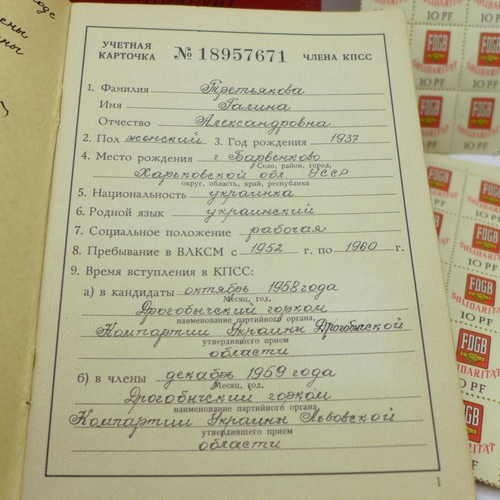 УЧЕТНАЯ КАРТОЧКА № 18957671 ЧЛЕНА КПСС
1. Фамилия Третьякова
Имя Галина
Отчество Александровна
2. Пол женский 3. Год рождения 1937
4. Место рождения г. Барвенково
Село, район, город,
Харьковской обл УССР
округ, область, край, республика
5. Национальность украинка
6. Родной язык украинский
7. Социальное положение рабочая
8. Пребывание в ВЛКСМ с 1952 г. по 1960 г.
9. Время вступления в КПСС:
а) в кандидаты октябрь 1958 года
Месяц, год,
Дрогобычский горком
наименование партийного органа,
Компартии Украины Дрогобычской
утвердившего прием
области
б) в члены декабрь 1959 года
Месяц, год,
Дрогобычский горком
наименование партийного органа,
Компартии Украины Львовской
утвердившего прием
области
1
FDGB
SOLIDARITÄT
10 PF
10 PF
FDGB
FDGB
SOLIDARITÄT
10 PF
FDGB
SOLIDARITÄT
10 PF
FDGB
SOLIDARITÄT
10 PF
FDGB